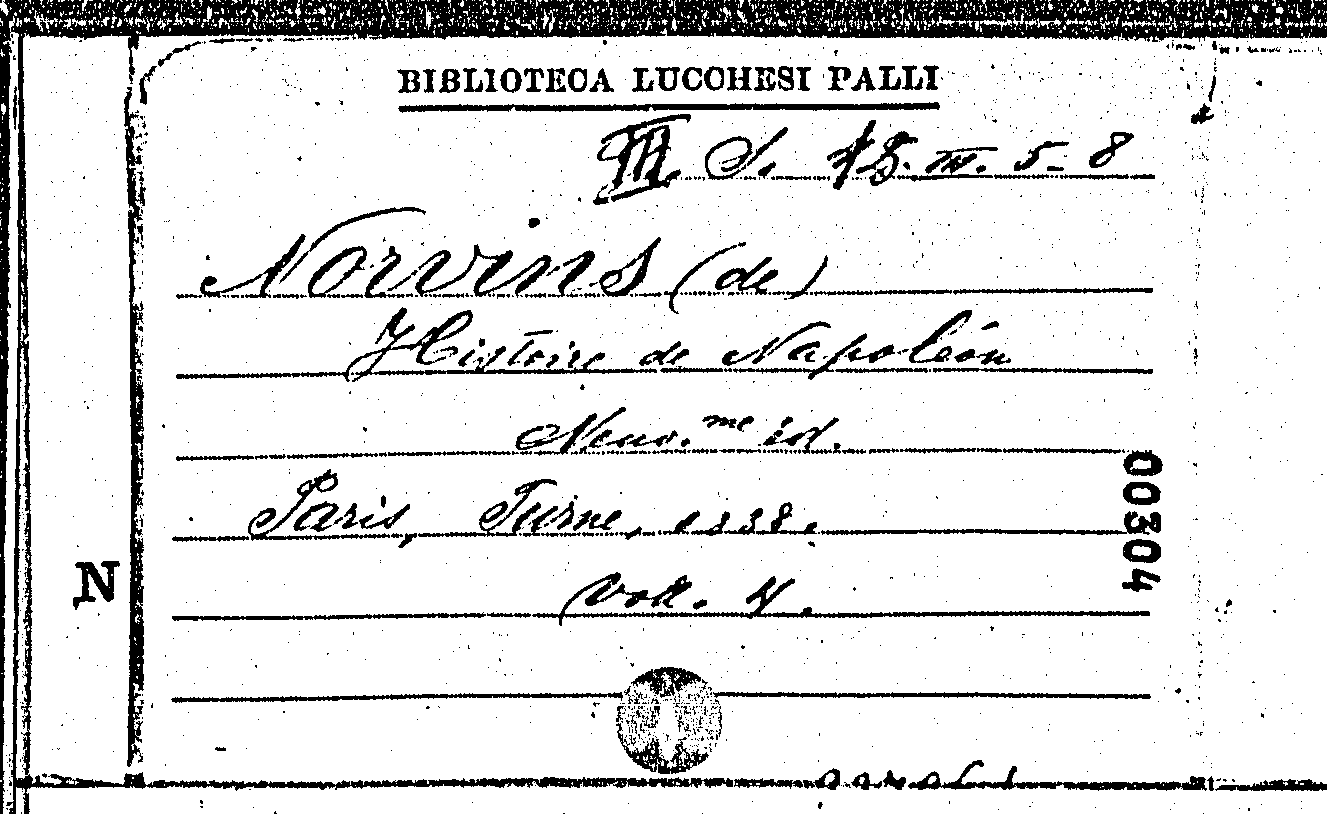 BIBLIOTECA LUCCHESI PALLI
III. S. 15. III. 5-8
Norvins (de)
Histoire de Napoléon
Neuv.me éd.
Paris, Furne, 1838.
Voll. 4.
N
00304